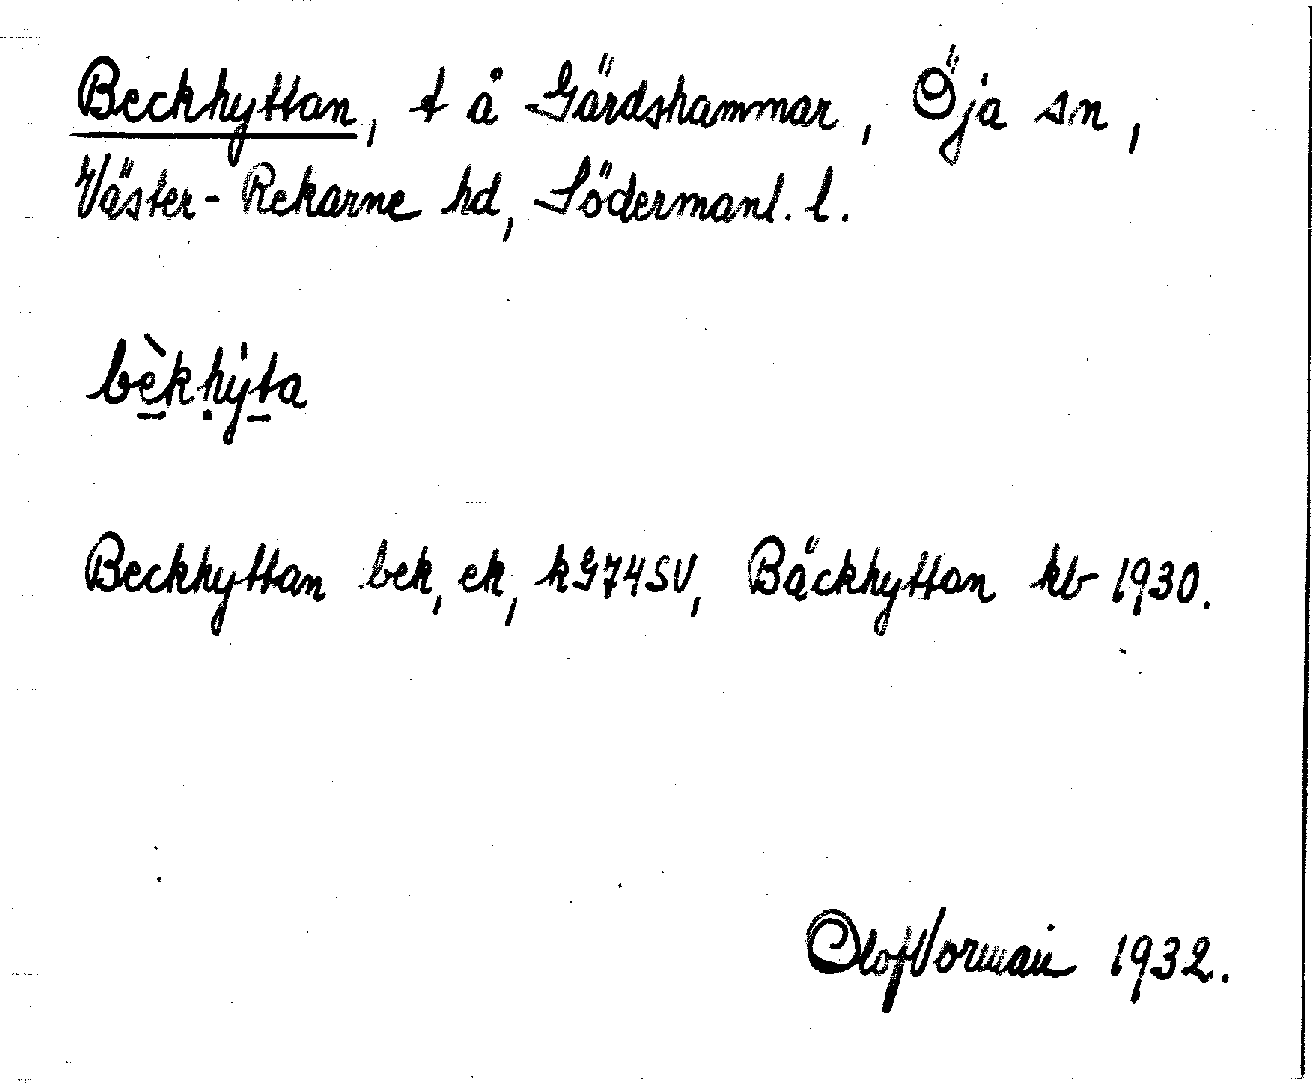 Beckhyttan, t å Gärdshammar, Öja sn,
Väster-Rekarne hd, Södermanl. l.
bèkhýta
Beckhyttan bek, ek, kG74SV, Bäckhyttan kb 1930.
Olof Vorman 1932.